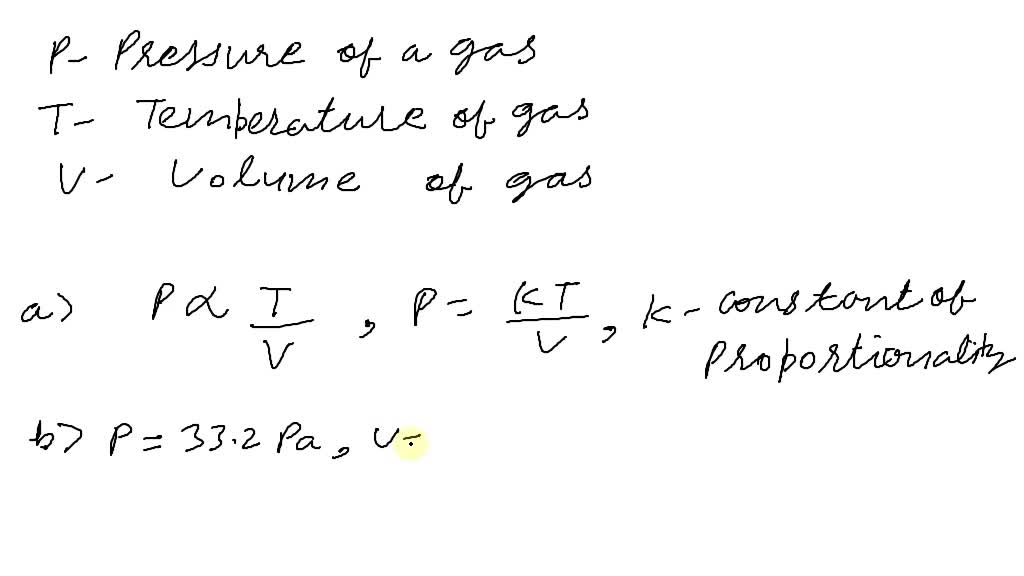 P- Pressure of a gas
T- Temperature of gas
V- Volume of gas
a) P ∝ T/V , P = KT/V , K- constant of
proportionality
b) P = 33.2 Pa, V=